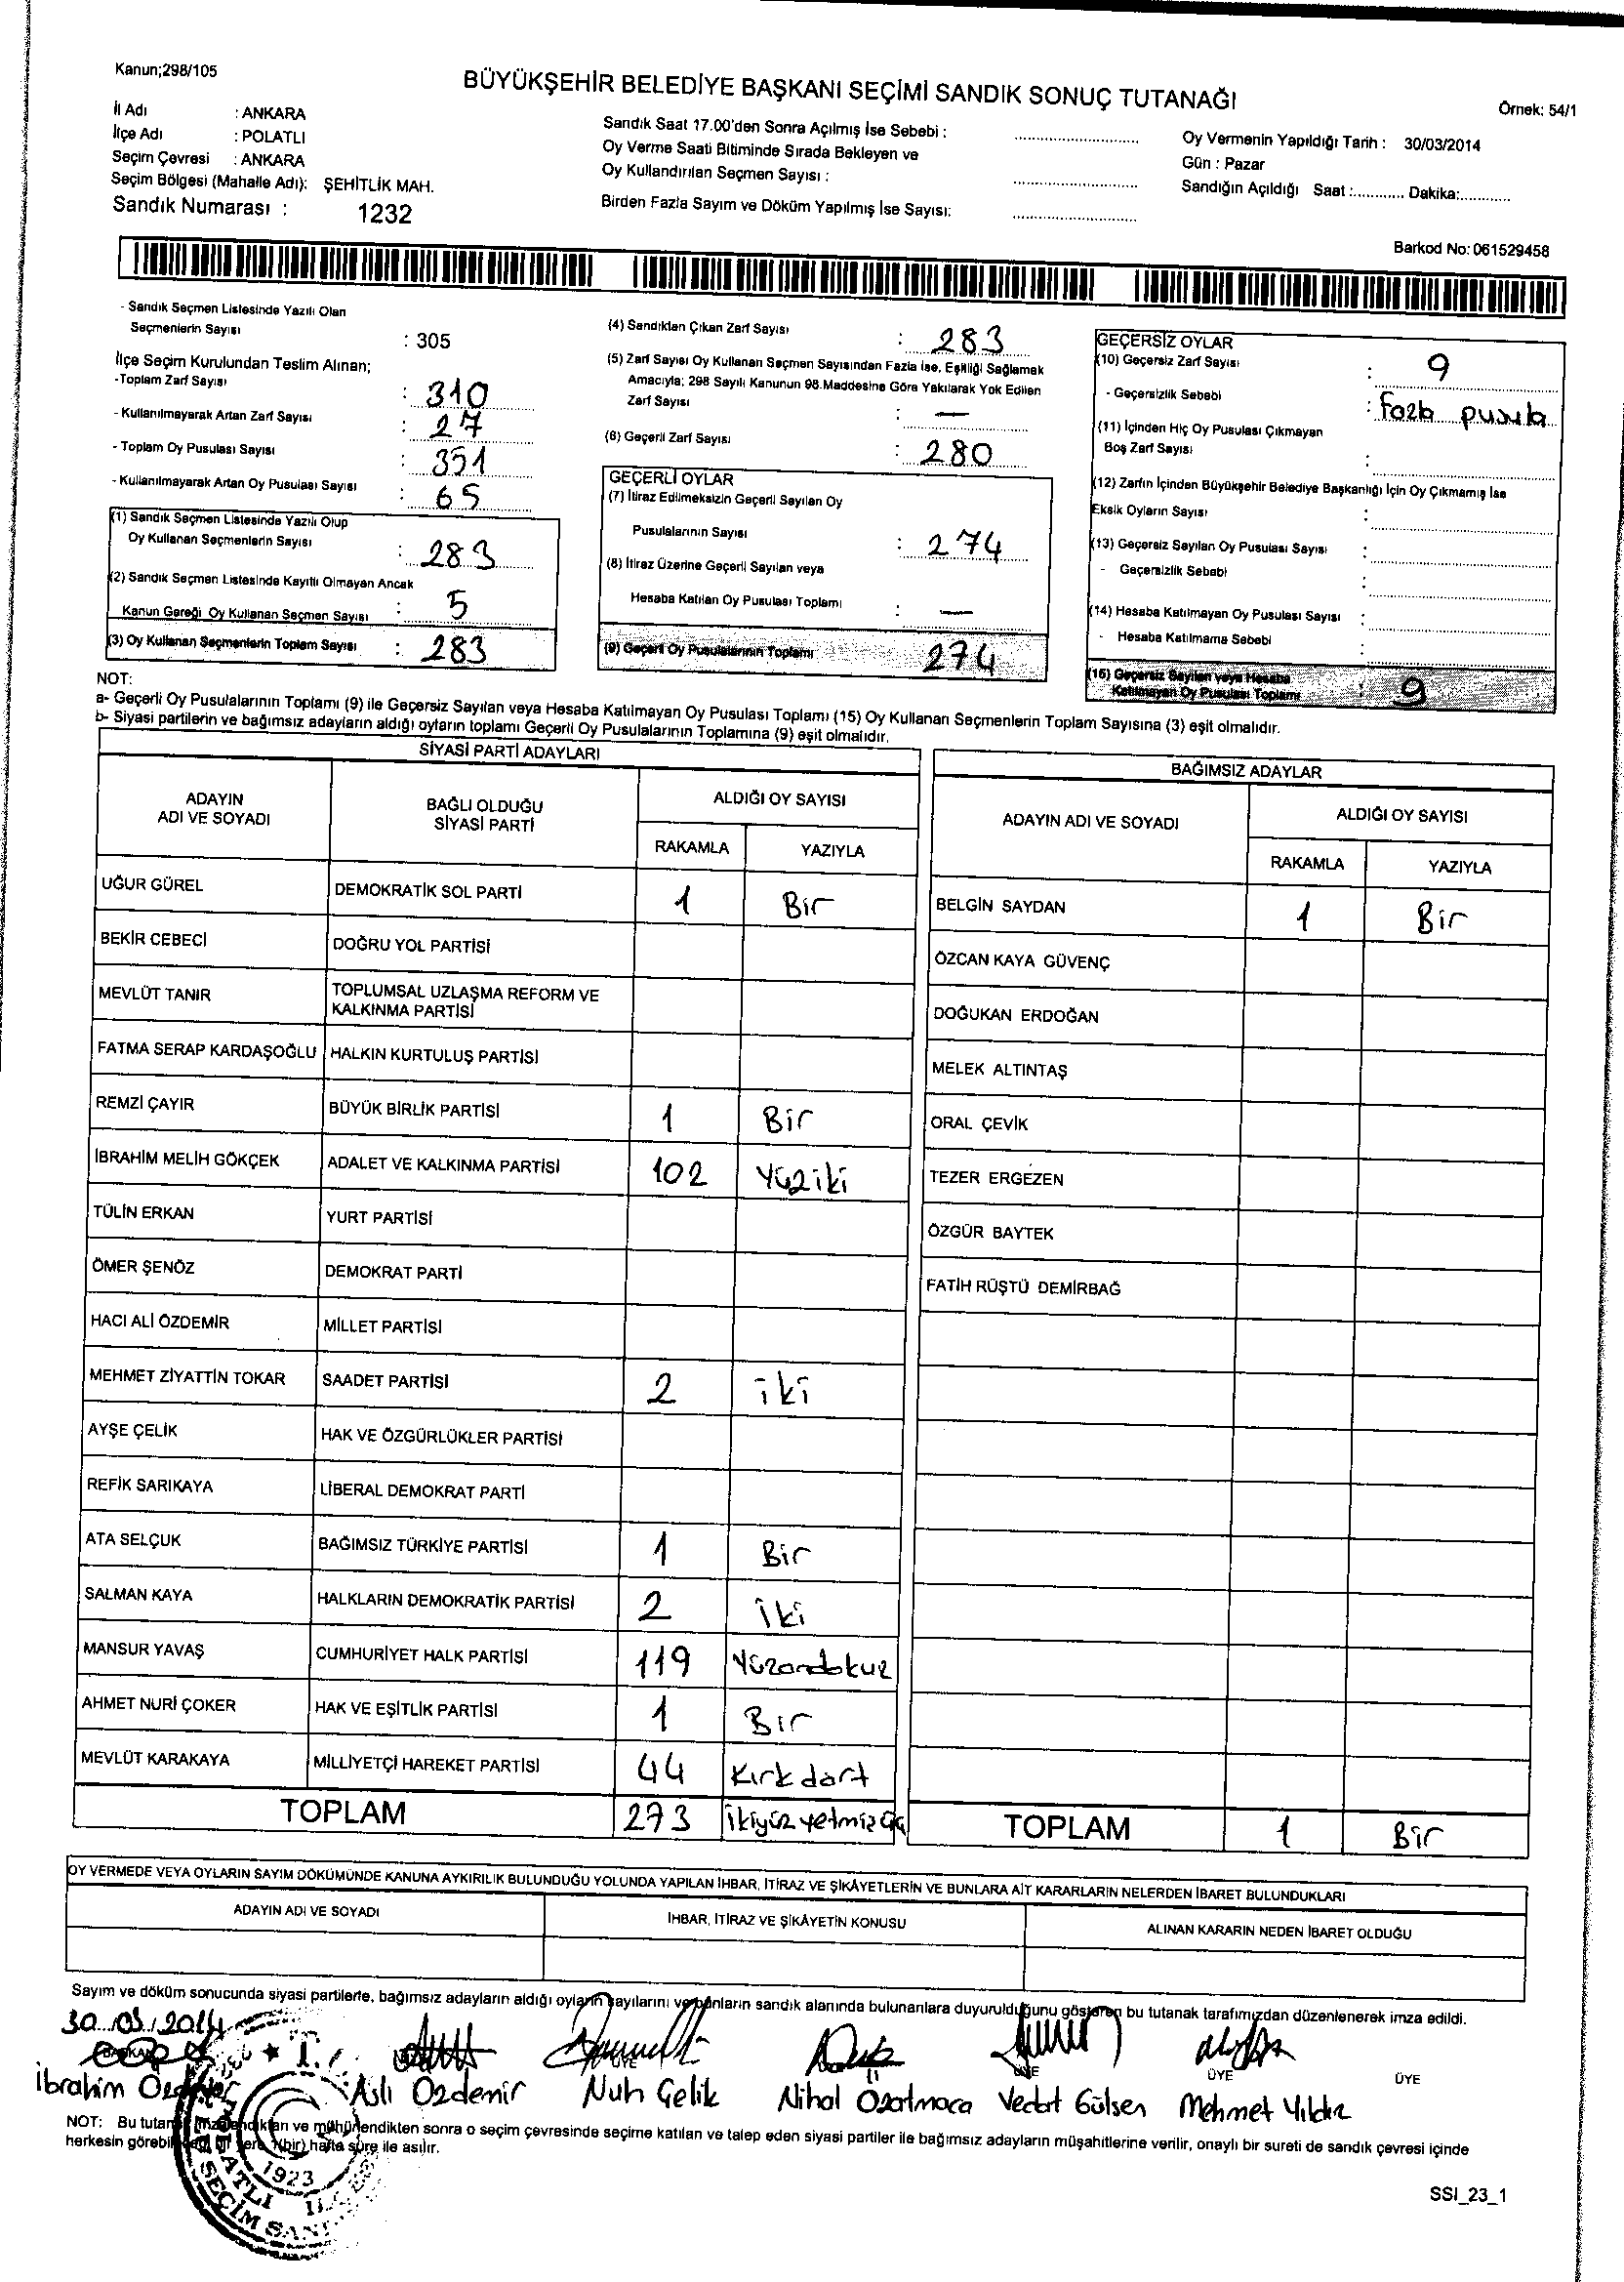 Kanun;298/105
BÜYÜKŞEHİR BELEDİYE BAŞKANI SEÇİMİ SANDIK SONUÇ TUTANAĞI
Örnek: 54/1
İl Adı : ANKARA
İlçe Adı : POLATLI
Seçim Çevresi : ANKARA
Seçim Bölgesi (Mahalle Adı): ŞEHİTLİK MAH.
Sandık Numarası : 1232
Sandık Saat 17.00'den Sonra Açılmış İse Sebebi :
Oy Verme Saati Bitiminde Sırada Bekleyen ve
Oy Kullandırılan Seçmen Sayısı :
Birden Fazla Sayım ve Döküm Yapılmış İse Sayısı:
Oy Vermenin Yapıldığı Tarih : 30/03/2014
Gün : Pazar
Sandığın Açıldığı Saat :............ Dakika:............
Barkod No: 061529458
- Sandık Seçmen Listesinde Yazılı Olan
Seçmenlerin Sayısı : 305
İlçe Seçim Kurulundan Teslim Alınan;
-Toplam Zarf Sayısı : 310
- Kullanılmayarak Artan Zarf Sayısı : 27
- Toplam Oy Pusulası Sayısı : 351
- Kullanılmayarak Artan Oy Pusulası Sayısı : 65
(1) Sandık Seçmen Listesinde Yazılı Olup
Oy Kullanan Seçmenlerin Sayısı : 283
(2) Sandık Seçmen Listesinde Kayıtlı Olmayan Ancak
Kanun Gereği Oy Kullanan Seçmen Sayısı : 5
(3) Oy Kullanan Seçmenlerin Toplam Sayısı : 283
(4) Sandıktan Çıkan Zarf Sayısı : 283
(5) Zarf Sayısı Oy Kullanan Seçmen Sayısından Fazla İse, Eşitliği Sağlamak
Amacıyla; 298 Sayılı Kanunun 98.Maddesine Göre Yakılarak Yok Edilen
Zarf Sayısı : —
(6) Geçerli Zarf Sayısı : 280
GEÇERLİ OYLAR
(7) İtiraz Edilmeksizin Geçerli Sayılan Oy
Pusulalarının Sayısı : 274
(8) İtiraz Üzerine Geçerli Sayılan veya
Hesaba Katılan Oy Pusulası Toplamı : —
(9) Geçerli Oy Pusulalarının Toplamı 274
GEÇERSİZ OYLAR
(10) Geçersiz Zarf Sayısı : 9
- Geçersizlik Sebebi : Fazla pusula
(11) İçinden Hiç Oy Pusulası Çıkmayan
Boş Zarf Sayısı :
(12) Zarfın İçinden Büyükşehir Belediye Başkanlığı İçin Oy Çıkmamış İse
Eksik Oyların Sayısı :
(13) Geçersiz Sayılan Oy Pusulası Sayısı :
- Geçersizlik Sebebi :
(14) Hesaba Katılmayan Oy Pusulası Sayısı :
- Hesaba Katılmama Sebebi :
(15) Geçersiz Sayılan veya Hesaba
Katılmayan Oy Pusulası Toplamı : 9
NOT:
a- Geçerli Oy Pusulalarının Toplamı (9) ile Geçersiz Sayılan veya Hesaba Katılmayan Oy Pusulası Toplamı (15) Oy Kullanan Seçmenlerin Toplam Sayısına (3) eşit olmalıdır.
b- Siyasi partilerin ve bağımsız adayların aldığı oyların toplamı Geçerli Oy Pusulalarının Toplamına (9) eşit olmalıdır.
SİYASİ PARTİ ADAYLARI
ADAYIN ADI VE SOYADI
BAĞLI OLDUĞU SİYASİ PARTİ
ALDIĞI OY SAYISI
RAKAMLA YAZIYLA
UĞUR GÜREL DEMOKRATİK SOL PARTİ 1 Bir
BEKİR CEBECİ DOĞRU YOL PARTİSİ
MEVLÜT TANIR TOPLUMSAL UZLAŞMA REFORM VE KALKINMA PARTİSİ
FATMA SERAP KARDAŞOĞLU HALKIN KURTULUŞ PARTİSİ
REMZİ ÇAYIR BÜYÜK BİRLİK PARTİSİ 1 Bir
İBRAHİM MELİH GÖKÇEK ADALET VE KALKINMA PARTİSİ 102 Yüziki
TÜLİN ERKAN YURT PARTİSİ
ÖMER ŞENÖZ DEMOKRAT PARTİ
HACI ALİ ÖZDEMİR MİLLET PARTİSİ
MEHMET ZİYATTİN TOKAR SAADET PARTİSİ 2 iki
AYŞE ÇELİK HAK VE ÖZGÜRLÜKLER PARTİSİ
REFİK SARIKAYA LİBERAL DEMOKRAT PARTİ
ATA SELÇUK BAĞIMSIZ TÜRKİYE PARTİSİ 1 Bir
SALMAN KAYA HALKLARIN DEMOKRATİK PARTİSİ 2 İki
MANSUR YAVAŞ CUMHURİYET HALK PARTİSİ 119 Yüzondokuz
AHMET NURİ ÇOKER HAK VE EŞİTLİK PARTİSİ 1 Bir
MEVLÜT KARAKAYA MİLLİYETÇİ HAREKET PARTİSİ 44 Kırk dört
TOPLAM 273 ikiyüz yetmiz üç
BAĞIMSIZ ADAYLAR
ADAYIN ADI VE SOYADI
ALDIĞI OY SAYISI
RAKAMLA YAZIYLA
BELGİN SAYDAN 1 Bir
ÖZCAN KAYA GÜVENÇ
DOĞUKAN ERDOĞAN
MELEK ALTINTAŞ
ORAL ÇEVİK
TEZER ERGEZEN
ÖZGÜR BAYTEK
FATİH RÜŞTÜ DEMİRBAĞ
TOPLAM 1 Bir
OY VERMEDE VEYA OYLARIN SAYIM DÖKÜMÜNDE KANUNA AYKIRILIK BULUNDUĞU YOLUNDA YAPILAN İHBAR, İTİRAZ VE ŞİKÂYETLERİN VE BUNLARA AİT KARARLARIN NELERDEN İBARET BULUNDUKLARI
ADAYIN ADI VE SOYADI
İHBAR, İTİRAZ VE ŞİKÂYETİN KONUSU
ALINAN KARARIN NEDEN İBARET OLDUĞU
Sayım ve döküm sonucunda siyasi partilerle, bağımsız adayların aldığı oyların sayılarını ve bunların sandık alanında bulunanlara duyurulduğunu gösteren bu tutanak tarafımızdan düzenlenerek imza edildi.
30.03.2014
BAŞKAN ÜYE ÜYE ÜYE ÜYE
İbrahim Aslı Özdemir Nuh Çelik Nihal Vedat Gülsen Mehmet Yıldız
NOT: Bu tutanak imzalandıktan ve mühürlendikten sonra o seçim çevresinde seçime katılan ve talep eden siyasi partiler ile bağımsız adayların müşahitlerine verilir, onaylı bir sureti de sandık çevresi içinde
herkesin görebileceği bir yere 1(bir) hafta süre ile asılır.
T.
1923
SEÇİM SANDI
SSI_23_1